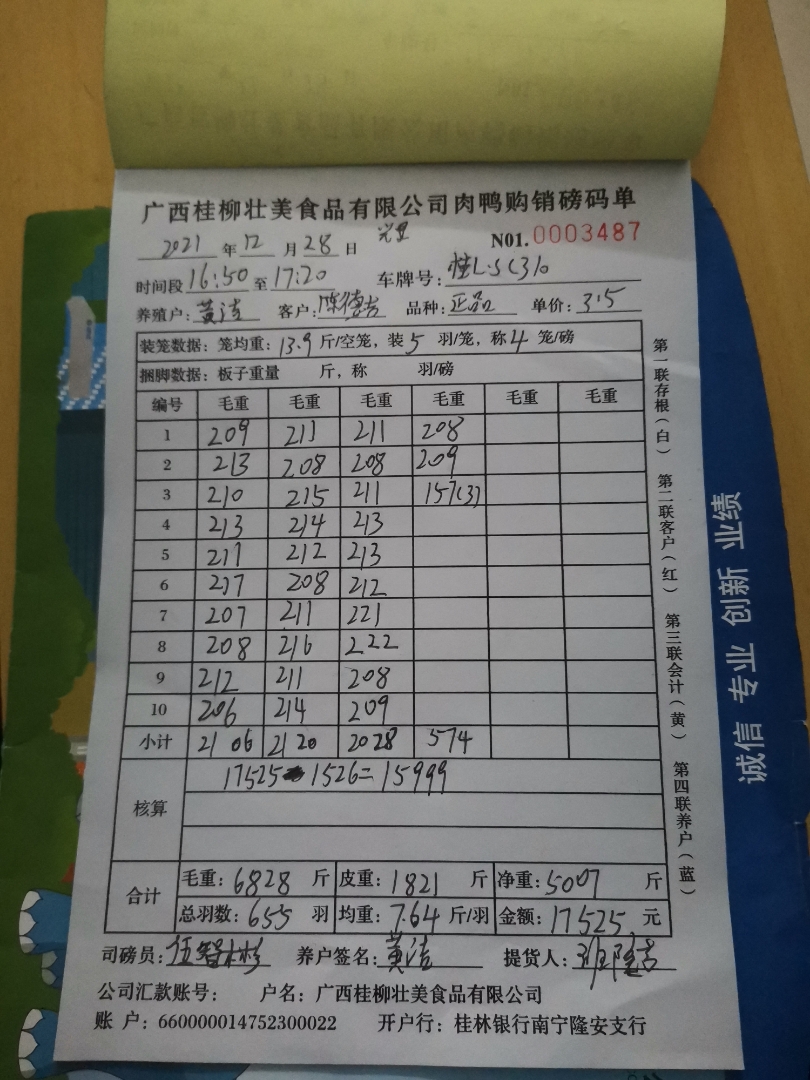 广西桂柳壮美食品有限公司肉鸭购销磅码单
2021 年 12 月 28 日
N01.0003487
时间段 16:50 至 17:20 车牌号: 桂L·SC310
养殖户: 黄洁 客户: 陈德吉 品种: 正品 单价: 3.5
装笼数据: 笼均重: 13.9 斤/空笼, 装 5 羽/笼, 称 4 笼/磅
捆脚数据: 板子重量 斤, 称 羽/磅
编号 毛重 毛重 毛重 毛重 毛重
1 209 211 211 208
2 213 208 208 209
3 210 215 211 157(3)
4 213 214 213
5 211 212 213
6 217 208 212
7 207 211 221
8 208 216 222
9 212 211 208
10 206 214 209
小计 2106 2120 2028 574
核算 17525 - 1526=15999
合计 毛重: 6828 斤 皮重: 1821 斤 净重: 5007 斤
总羽数: 655 羽 均重: 7.64 斤/羽 金额: 17525 元
司磅员: 养户签名: 黄洁 提货人:
公司汇款账号: 户名: 广西桂柳壮美食品有限公司
账 户: 660000014752300022 开户行: 桂林银行南宁隆安支行
第一联存根(白) 第二联客户(红) 第三联会计(黄) 第四联养户(蓝)
诚信 专业 创新 业绩